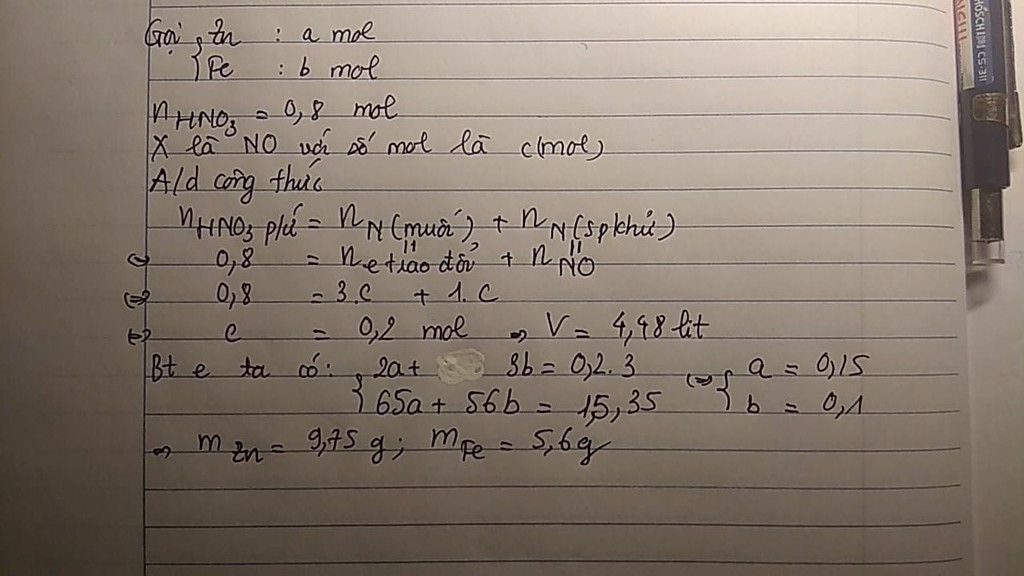 Gọi { Zn : a mol
{ Fe : b mol
nHNO3 = 0,8 mol
X là NO với số mol là c(mol)
A/d công thức
nHNO3 p/ứ = nN(muối) + nN(spkhử)
<=> 0,8 = ne trao đổi + nNO
<=> 0,8 = 3.c + 1.c
<=> c = 0,2 mol => V = 4,48 lít
Bt e ta có: { 2a + 3b = 0,2.3 <=> { a = 0,15
{ 65a + 56b = 15,35 { b = 0,1
=> mZn = 9,75 g; mFe = 5,6g